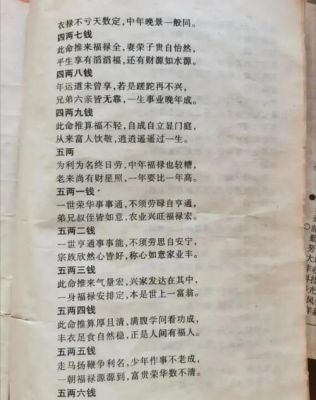 衣禄不亏天数定，中年晚景一般同。
四两七钱
此命推来福禄全，妻荣子贵自怡然，
平生享有滔滔福，还有财源如水源。
四两八钱
年运道未曾享，若是蹉跎再不兴，
兄弟六亲皆无靠，一生事业晚年成。
四两九钱
此命推算福不轻，自成自立显门庭，
从来富人饮敬，逍逍遥遥过一生。
五两
为利为名终日劳，中年福禄也较糟，
老来尚有财星照，一年要比一年高。
五两一钱
一世荣华事事通，不须劳碌自亨通，
弟兄叔侄皆如意，农业兴旺福禄宏。
五两二钱
一世亨通事事能，不须劳思自安宁，
宗族欣然心皆好，称心如意家业丰。
五两三钱
此命推来气量宏，兴家发达在其中，
一身福禄安排定，本是世上一富翁。
五两四钱
此命推算厚且清，满腹学问看功成，
丰衣足食自然稳，正是人间有福人。
五两五钱
走马扬鞭争利名，少年作事不老成，
一朝福禄源源到，富贵荣华数不清。
五两六钱